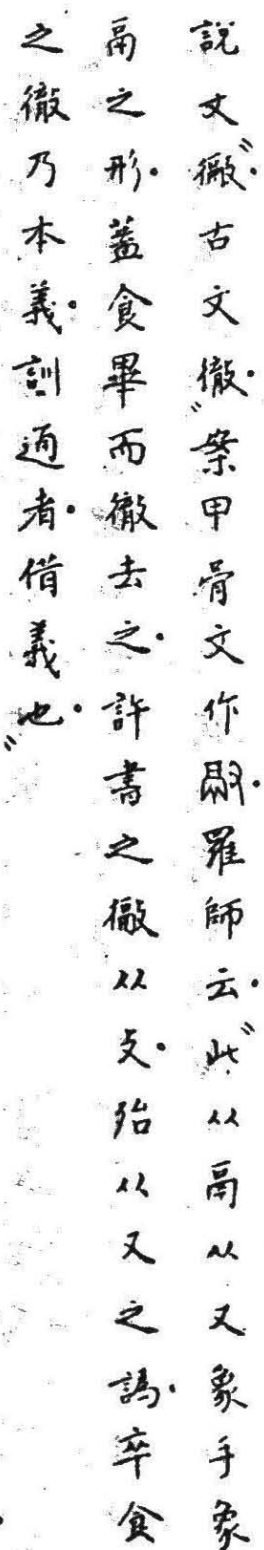 說文〝𢕹．古文徹．〞案甲骨文作𢽠．羅師云．〝此从鬲从又象手象
鬲之形．蓋食畢而徹去之．許書之𢕹从攴．殆从又之譌．卒食
之徹乃本義．訓通者．借義也．〞